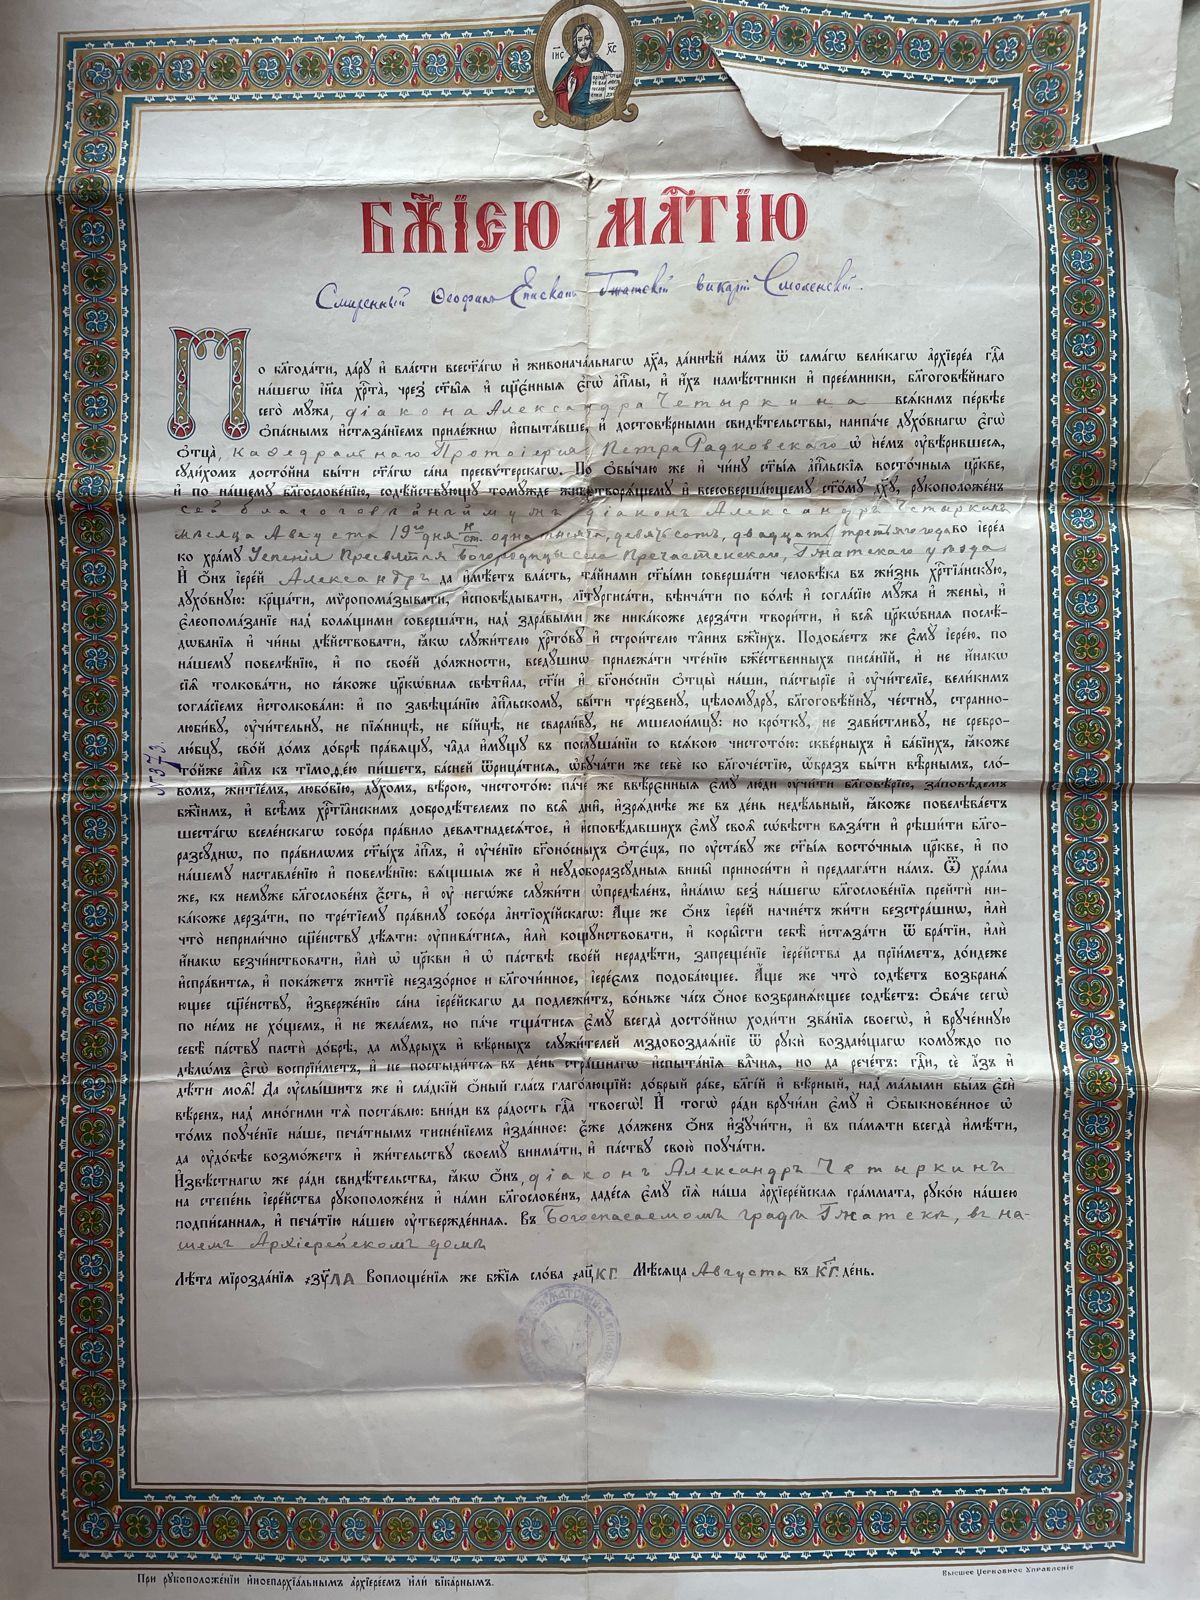 І҆И҃С Х҃С
БЖ҃І́ЕЮ МЛⷭ҇ТІЮ
Смиренный Ѳеофилъ Епископъ Гжатскій викарій Смоленскій.
По бл҃года́ти, да́ру и҆ вла́сти всест҃а́гѡ и҆ живонача́льнагѡ дх҃а, да́ннѣй на́мъ ѿ самагѡ вели́кагѡ а҆рхїере́а гдⷭ҇а
на́шегѡ і҆и҃са хрⷭ҇та̀, чрез̾ ст҃ы̑ѧ и҆ сщ҃е́нныѧ є҆гѡ̀ а҆пⷭ҇лы, и҆ и҆́хъ намѣ́стники и҆ прее́мники, бл҃гоговѣ́йнаго
сего̀ мꙋ́жа, діакона Александра Четыркина всѧ́кимъ пе́рвѣе
ѻ҆па́снымъ и҆стѧза́нїемъ прилѣ́жнѡ и҆спыта́вше, и҆ достовѣ́рными свидѣ́тельствы, наипа́че дꙋхо́внагѡ є҆гѡ̀
ѻ҆тца̀, Кафедральнаго Протоіерея Петра Радковскаго ѡ҆ не́мъ ᲂу҆вѣ́рившесѧ,
сꙋди́хомъ досто́йна бы́ти ст҃а́гѡ са́на пресвѵ́терскагѡ. По ѻ҆бы́чаю же и҆ чи́нꙋ ст҃ы́ѧ а҆пⷭ҇льскїѧ восто́чныѧ цр҃кве,
и҆ по на́шемꙋ бл҃гослове́нїю, содѣ́йствꙋющꙋ томꙋ́жде животворѧ́щемꙋ и҆ всесоверша́ющемꙋ ст҃о́мꙋ дх҃ꙋ, рꙋкоположе́нъ
сей благоговѣйный мужъ діаконъ Александръ Четыркинъ
мѣсяца Августа 19го дня н/ст. одна тысяча, девятьсотъ, двадцать третьяго года во і҆ере́а
ко хра́мꙋ Успенія Пресвятыя Богородицы села Пречистенскаго, Гжатскаго уѣзда
И҆ ѻ҆́нъ і҆ере́й Александръ да и҆мѣ́етъ вла́сть, та́йнами ст҃ы́ми соверша́ти человѣ́ка въ жи́знь хрⷭ҇тїа́нскꙋю,
дꙋхо́внꙋю: кр҃ща́ти, мѵ̈ропома́зывати, и҆сповѣ́дывати, лїтꙋргиса́ти, вѣнча́ти по во́лѣ и҆ согла́сїю мꙋ́жа и҆ жены̀, и҆
є҆леопома́занїе над̾ болѧ́щими соверша́ти, над̾ здра́выми же ника́коже дерза́ти твори́ти, и҆ всѧ̑ цр҃ко́внаѧ послѣ́-
дѡванїѧ и҆ чи́ны дѣ́йствовати, ꙗ҆́кѡ слꙋжи́телю хрⷭ҇то́вꙋ и҆ строи́телю та́инъ бж҃їихъ. Подоба́етъ же є҆мꙋ̀ і҆ере́ю, по
на́шемꙋ повелѣ́нїю, и҆ по свое́й до́лжности, вседꙋ́шнѡ прилежа́ти чте́нїю бж҃е́ственныхъ писа́нїй, и҆ не и҆на́кѡ
сїѧ̑ толкова́ти, но ꙗ҆́коже цр҃кѡ́внаѧ свѣти̑ла, ст҃і́и и҆ бг҃оно́снїи ѻ҆тцы̀ на́ши, па́стырїе и҆ ᲂу҆чи́телїе, вели́кимъ
согла́сїемъ и҆столкова́ли: и҆ по завѣща́нїю а҆пⷭ҇льскомꙋ, бы́ти тре́звенꙋ, цѣломꙋ́дрꙋ, бл҃гоговѣ́йнꙋ, че́стнꙋ, странно-
люби́вꙋ, ᲂу҆чи́тельнꙋ, не пїѧ́ницѣ, не бі́йцѣ, не сварли́вꙋ, не мшелои́мцꙋ: но кро́ткꙋ, не зави́стливꙋ, не сребро-
лю́бцꙋ, сво́й до́мъ до́брѣ пра́вѧщꙋ, ча̑да и҆мꙋ́щꙋ въ послꙋша́нїи со всѧ́кою чистото́ю: скве́рныхъ и҆ ба́бїихъ, ꙗ҆́коже
то́йже а҆пⷭ҇лъ къ тїмоѳе́ю пи́шетъ, ба́сней ѿрица́тисѧ, ѡ҆бꙋча́ти же себѐ ко бл҃гоче́стїю, ѡ҆́бразъ бы́ти вѣ̑рнымъ, сло́-
вомъ, житїе́мъ, любо́вїю, дꙋ́хомъ, вѣ́рою, чистото́ю: па́че же ввѣ́рєнныѧ є҆мꙋ̀ лю́ди ᲂу҆чи́ти бл҃говѣ́рїю, за́повѣдемъ
бж҃їимъ, и҆ всѣ̑мъ хрⷭ҇тїа́нскимъ добродѣ́телемъ по всѧ̑ дни̑, и҆зрѧ́днѣе же въ де́нь недѣ́льный, ꙗ҆́коже повелѣва́етъ
шеста́гѡ вселе́нскагѡ собо́ра пра́вило девѧтнадесѧ́тое, и҆ и҆сповѣ́давшихъ є҆мꙋ̀ своѧ̑ сѡ́вѣсти вѧза́ти и҆ рѣши́ти бл҃го-
разсꙋ́днѡ, по пра́вилѡмъ ст҃ы́хъ а҆пⷭ҇лъ, и҆ ᲂу҆че́нїю бг҃оно́сныхъ ѻ҆те́цъ, по ᲂу҆ста́вꙋ же ст҃ы́ѧ восто́чныѧ цр҃кве, и҆ по
на́шемꙋ наставле́нїю и҆ повелѣ́нїю: вѧ́щшыѧ же и҆ неꙋдоборазсꙋ̑дныѧ вины̑ приноси́ти и҆ предлага́ти на́мъ. Ѿ хра́ма
же, къ немꙋ́же бл҃гослове́нъ є҆́сть, и҆ ᲂу҆ негѡ́же слꙋжи́ти ѡ҆предѣле́нъ, и҆на́мѡ без̾ на́шегѡ бл҃гослове́нїѧ прейтѝ ни-
ка́коже дерза́ти, по тре́тїемꙋ пра́вилꙋ собо́ра а҆нтїохі́йскагѡ: А҆́ще же ѻ҆́нъ і҆ере́й начне́тъ жи́ти безстра́шнѡ, и҆лѝ
что̀ неприли́чно сщ҃е́нствꙋ дѣ́ѧти: ᲂу҆пива́тисѧ, и҆лѝ кощꙋ́нствовати, и҆ коры́сти себѣ̀ и҆стѧза́ти ѿ бра́тїи, и҆лѝ
и҆на́кѡ безчи́нствовати, и҆лѝ ѡ҆ цр҃кви и҆ ѡ҆ па́ствѣ свое́й неради́ти, запреще́нїе і҆ере́йства да прїи́метъ, до́ндеже
и҆спра́витсѧ, и҆ пока́жетъ житїѐ незазо́рное и҆ бл҃гочи́нное, і҆ере́ємъ подоба́ющее. А҆́ще же что̀ содѣ́етъ возбранѧ́-
ющее сщ҃е́нствꙋ, и҆зверже́нїю са́на і҆ере́йскагѡ да подлежи́тъ, во́ньже ча́съ ѻ҆́ное возбранѧ́ющее содѣ́етъ: ѻ҆ба́че сегѡ̀
по не́мъ не хо́щемъ, и҆ не жела́емъ, но па́че тща́тисѧ є҆мꙋ̀ всегда̀ досто́йнѡ ходи́ти зва́нїѧ своегѡ̀, и҆ врꙋче́ннꙋю
себѣ̀ па́ствꙋ пастѝ до́брѣ, да мꙋ́дрыхъ и҆ вѣ́рныхъ слꙋжи́телей мздовоздаѧ́нїе ѿ рꙋкѝ воздаю́щагѡ комꙋ́ждо по
дѣлѡ́мъ є҆гѡ̀ воспрїи́метъ, и҆ не постыди́тсѧ въ де́нь стра́шнагѡ и҆спыта́нїѧ вл҃чнѧ, но да рече́тъ: гдⷭ҇и, сѐ а҆́зъ и҆
дѣ́ти моѧ̑! Да ᲂу҆слы́шитъ же и҆ сла́дкїй ѻ҆́ный гла́съ глаго́лющїй: до́брый ра́бе, бл҃гі́й и҆ вѣ́рный, над̾ ма́лыми бы́лъ є҆сѝ
вѣ́ренъ, над̾ мно́гими тѧ̀ поста́влю: вни́ди въ ра́дость гдⷭ҇а твоегѡ̀! И҆ тогѡ̀ ра́ди врꙋчи́ли є҆мꙋ̀ и҆ ѻ҆быкнове́нное ѡ҆
то́мъ поꙋче́нїе на́ше, печа́тнымъ тисне́нїемъ и҆́зданное: є҆́же до́лженъ ѻ҆́нъ и҆зꙋчи́ти, и҆ въ па́мѧти всегда̀ и҆мѣ́ти,
да ᲂу҆до́бѣе возмо́жетъ и҆ жи́тельствꙋ своемꙋ̀ внима́ти, и҆ па́ствꙋ свою̀ поꙋча́ти.
И҆звѣ́стнагѡ же ра́ди свидѣ́тельства, ꙗ҆́кѡ ѻ҆́нъ, діаконъ Александръ Четыркинъ
на сте́пень і҆ере́йства рꙋкоположе́нъ и҆ на́ми бл҃гослове́нъ, даде́сѧ є҆мꙋ̀ сїѧ̀ на́ша а҆рхїере́йская гра́ммата, рꙋко́ю на́шею
подпи́санная, и҆ печа́тїю на́шею ᲂу҆твержде́нная. Въ Богоспасаемомъ градѣ Гжатскѣ, въ на-
шемъ Архіерейскомъ домѣ
Лѣ́та мїрозда́нїѧ ҂зу҃ЛА Воплоще́нїѧ же бж҃їѧ сло́ва ҂ац҃КГ Мѣ́сѧца Августа въ К҃Г де́нь.
№ 373.
При рꙋкоположе́нїи и҆ноепархїа́льнымъ а҆рхїере́емъ и҆лѝ вїка́рнымъ.
Высшее Церковное Управленіе